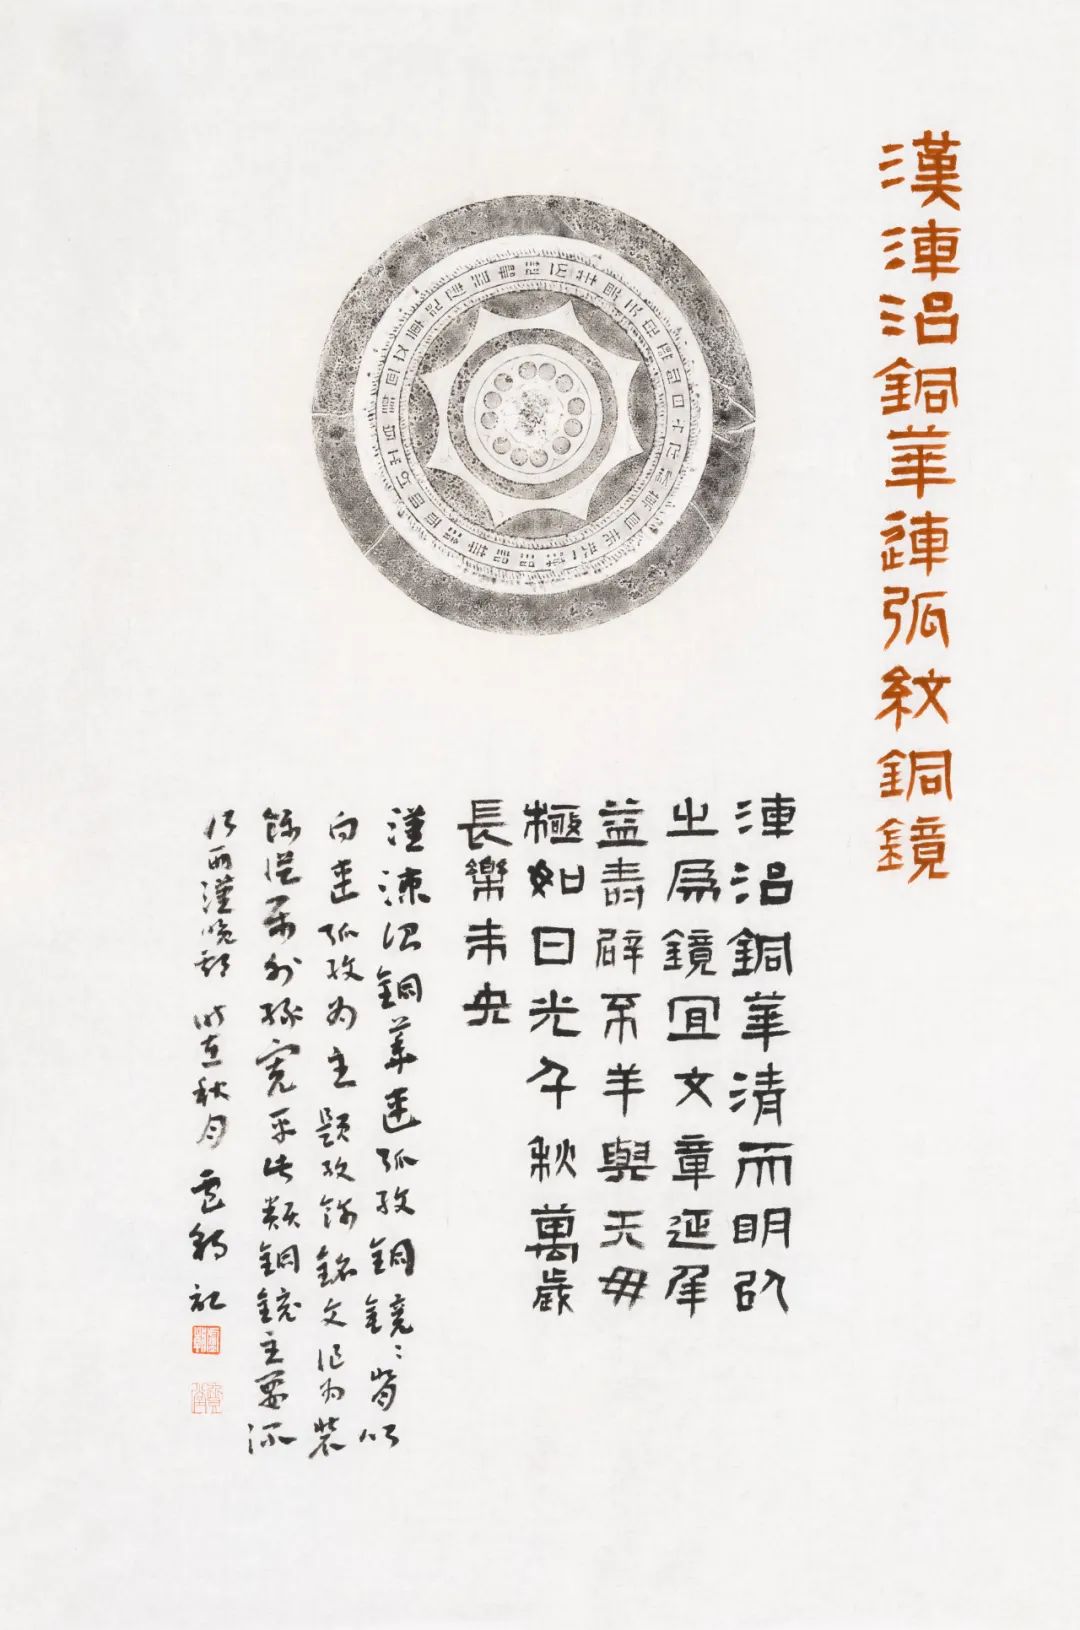 漢湅治銅華連弧紋銅鏡
湅治銅華清而明以
之為鏡宜文章延年
益壽辟不羊與天毋
極如日光千秋萬歲
長樂未央
漢湅治銅華連弧紋銅鏡〻背以
向連弧紋為主題紋飾銘文作為裝
飾從屬外緣寬平此類銅鏡主要流
行西漢晚期時在秋月記